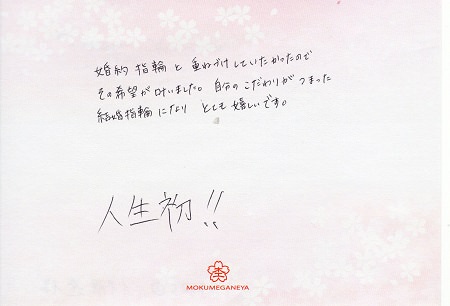 婚約指輪と重ねづけしていたかったので
その希望が叶いました。自分のこだわりがつまった
結婚指輪になり とても嬉しいです。
人生初!!
MOKUMEGANEYA